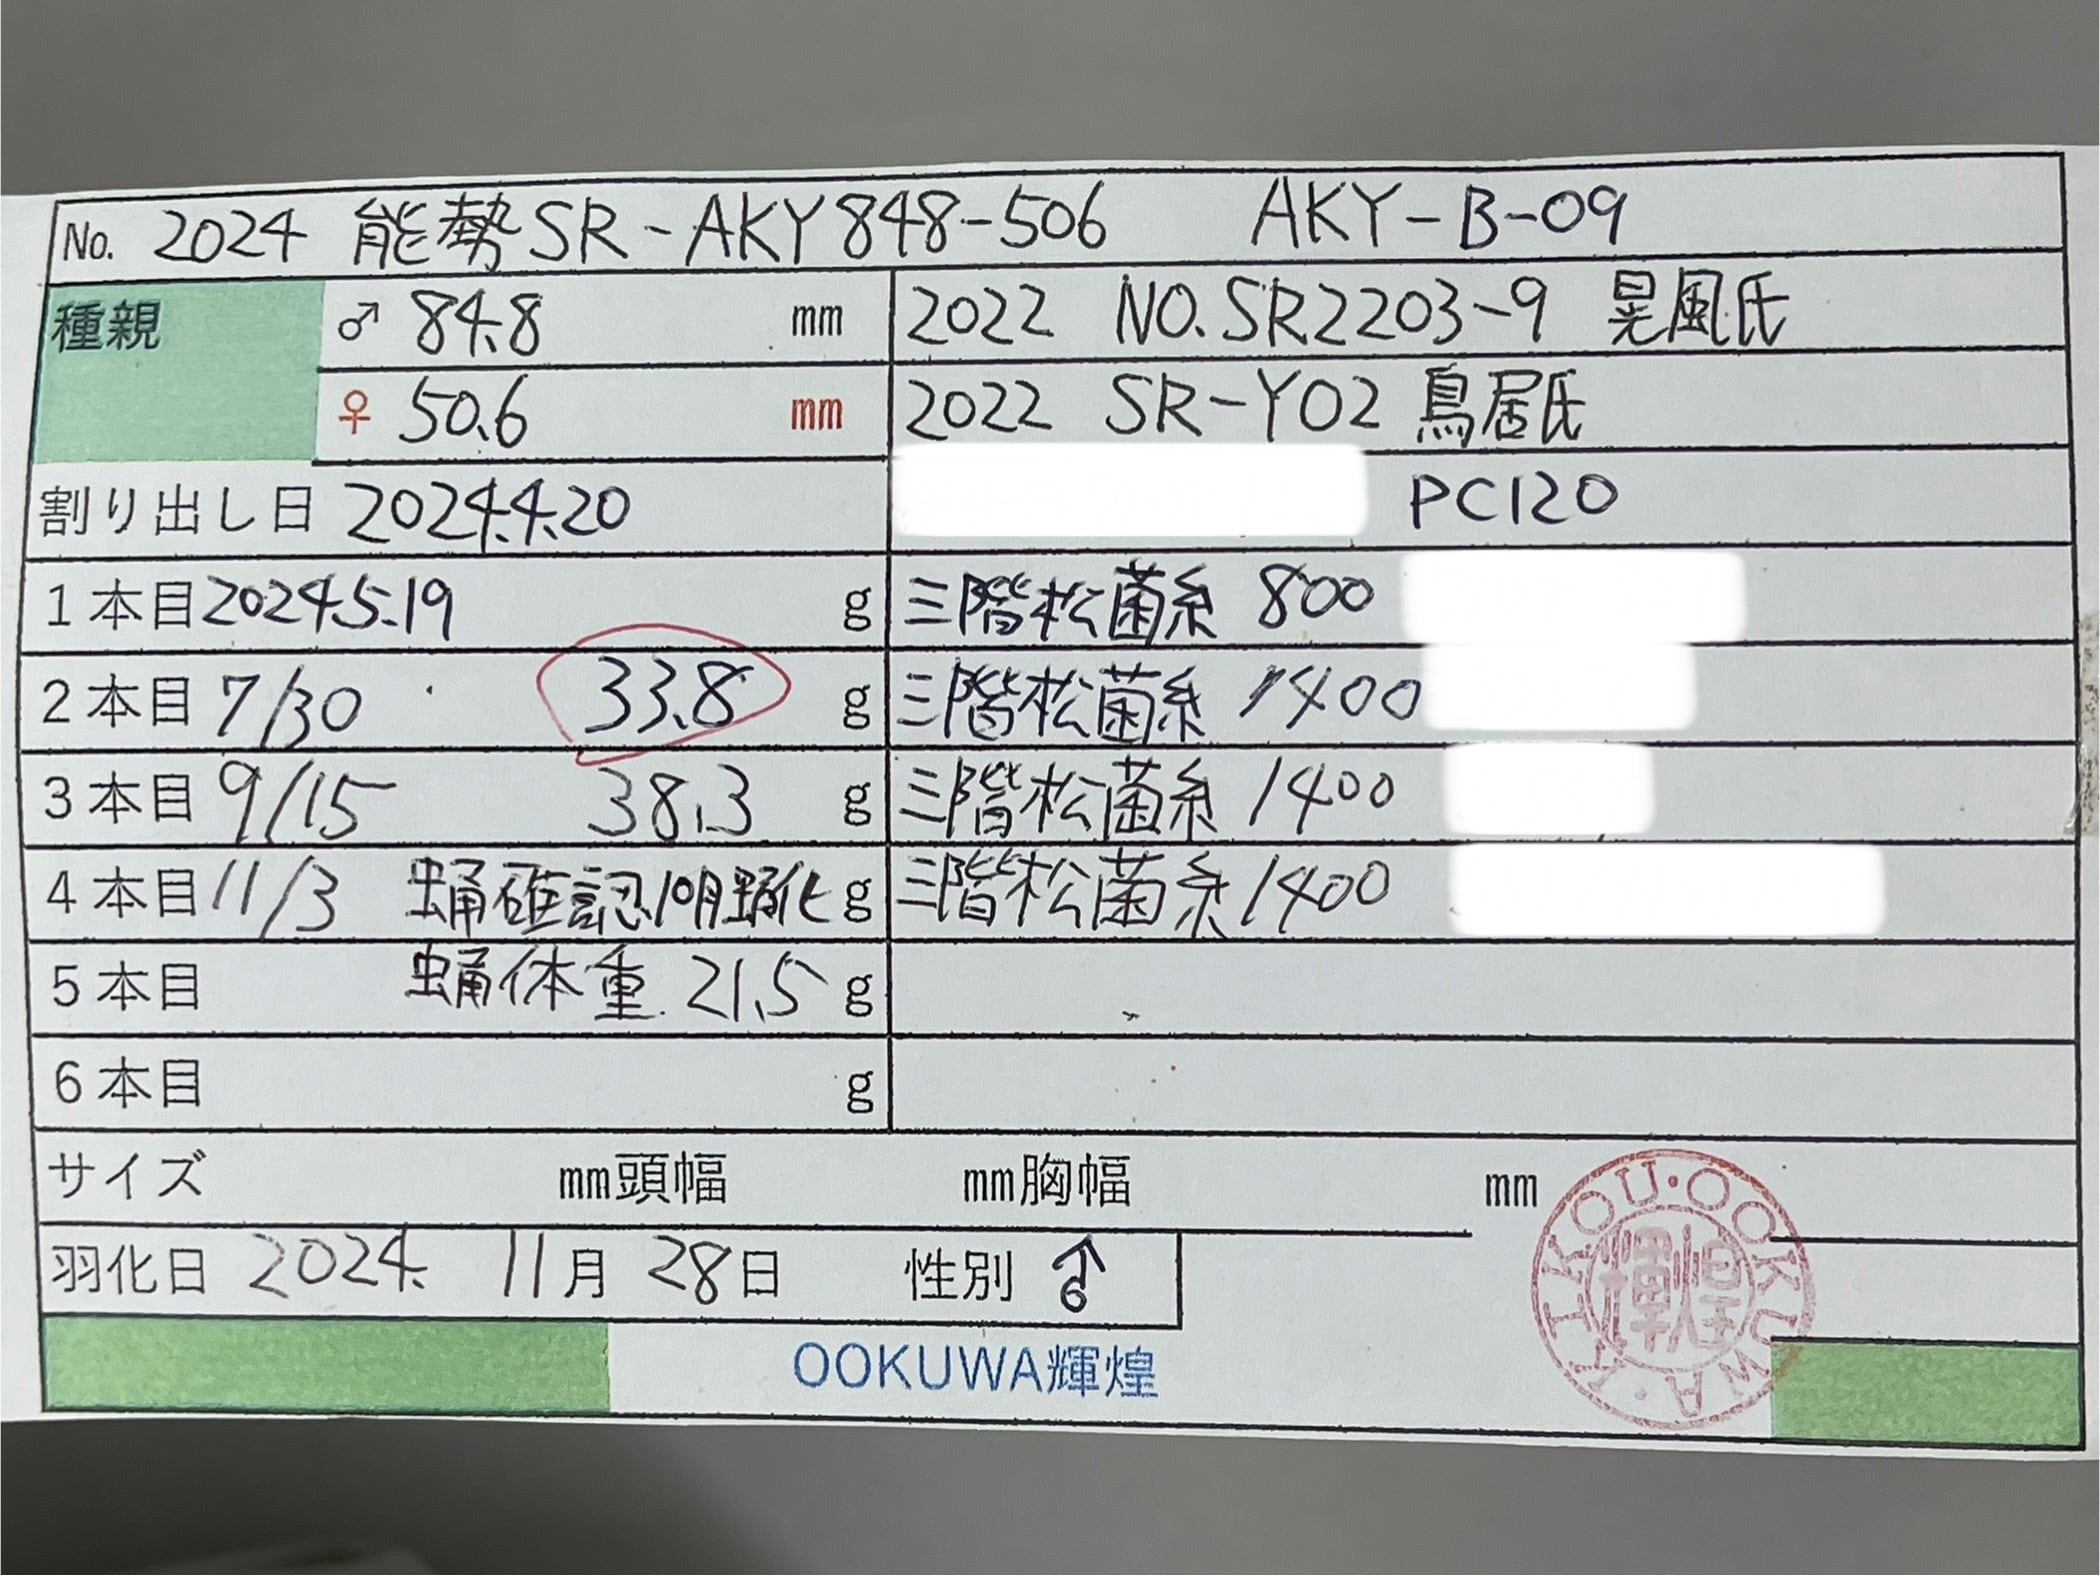 No. 2024 能勢SR-AKY848-506 AKY-B-09
種親 ♂ 84.8 mm 2022 NO.SR2203-9 晃風氏
♀ 50.6 mm 2022 SR-Y02 鳥居氏
割り出し日 2024.4.20 PC120
1本目 2024.5.19 g 三階松菌糸 800
2本目 7/30 33.8 g 三階松菌糸 1400
3本目 9/15 38.3 g 三階松菌糸 1400
4本目 11/3 蛹確認 10月蛹化 g 三階松菌糸 1400
5本目 蛹体重 21.5 g
6本目 g
サイズ mm頭幅 mm胸幅 mm
羽化日 2024. 11月 28日 性別 ♂
OOKUWA輝煌
KIKOU・OOKUWA・
輝煌